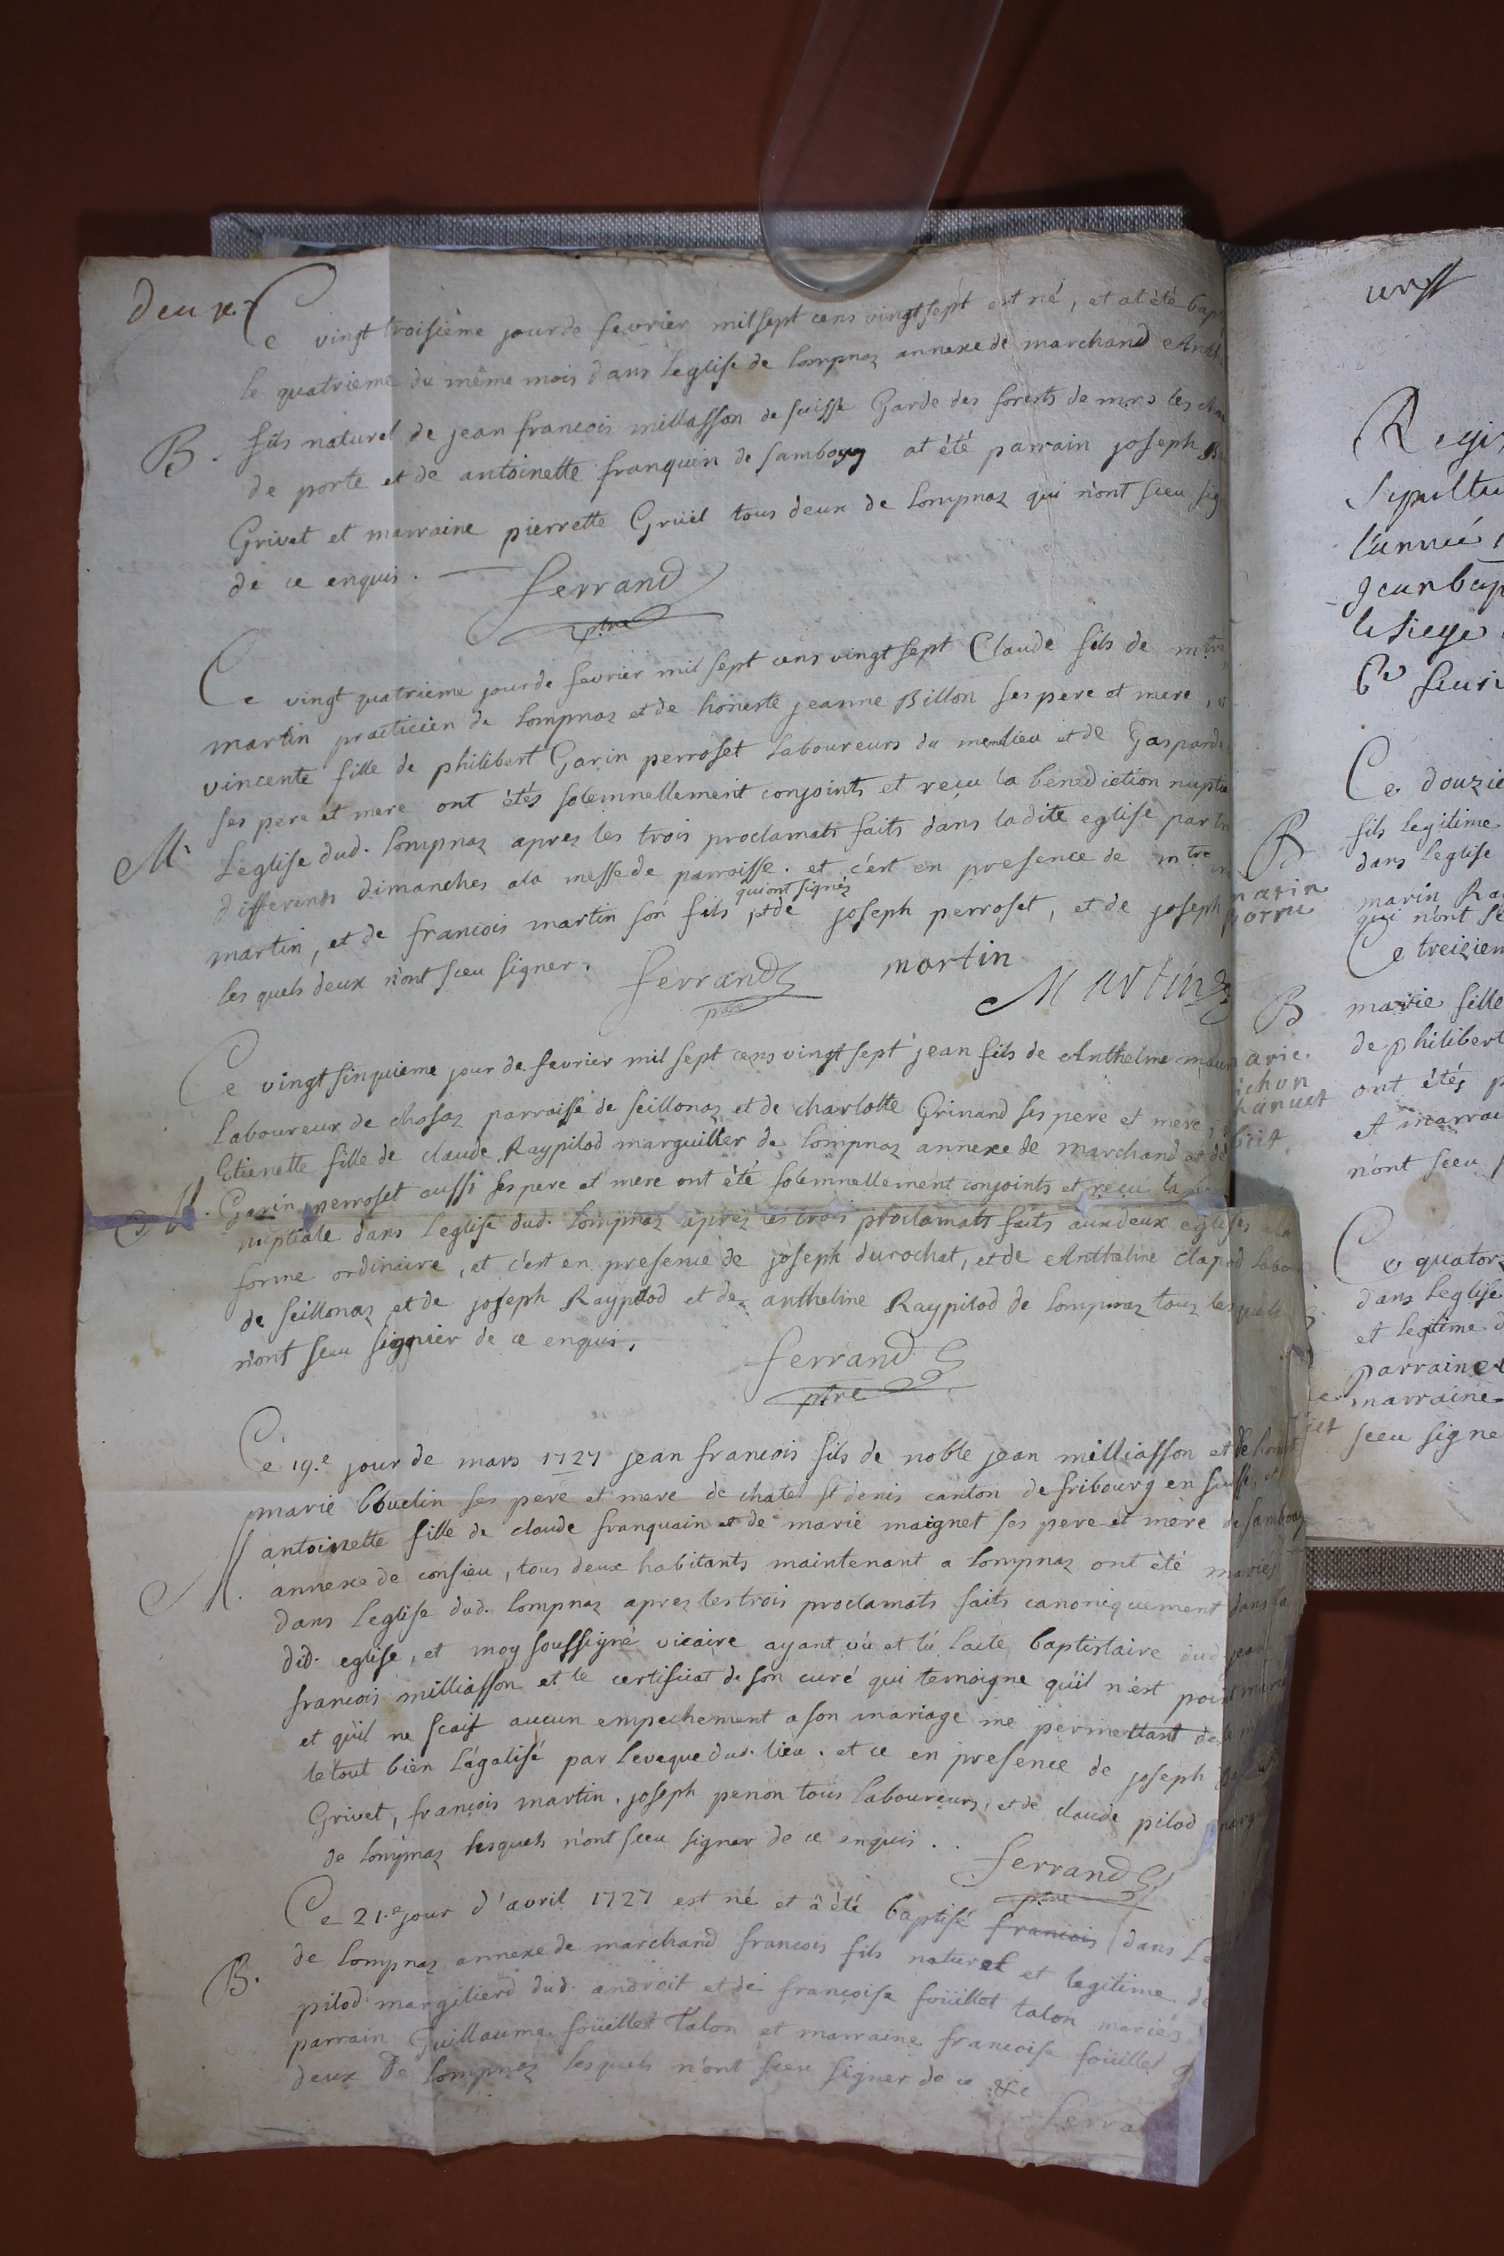 deux.
Ce vingt troisième jour de fevrier mil sept cens vingt sept est né, et at été bap
le quatrieme du même mois dans leglise de lompnaz annexe de marchand
B. fils naturel de jean francois millasson de suisse Garde des forests de mrs les
de porte et de antoinette franquin de samboy at été parrain joseph
Grivet et marraine pierrette Grüel tous deux de lompnaz qui n'ont sceu sig
de ce enquis.
ferrand
ptre
Ce vingt quatrieme jour de fevrier mil sept cens vingt sept Claude fils de mtre
martin practicien de lompnaz et de honeste jeanne Billon ses pere et mere,
vincente fille de philibert Garin perroset laboureurs du meme lieu et de Gasparde
ses pere et mere ont étés solemnellement conjoints et reçu la benediction nuptia
M. leglise dud. lompnaz apres les trois proclamats faits dans ladite eglise par tr
differents dimanches a la messe de parroisse. et c'est en presence de mtre
qui ont signés
martin, et de francois martin son fils, et de joseph perroset, et de joseph
les quels deux n'ont sceu signer.
ferrand
ptre
martin
Martin
Ce vingt sinquieme jour de fevrier mil sept cens vingt sept jean fils de Anthelme
laboureur de chosaz parroisse de seillonaz et de charlotte Grinand ses pere et mere,
Etienette fille de claude Raypilod marguiller de lompnaz annexe de marchand et de
M. Garin perroset aussi ses pere et mere ont été solemnellement conjoints et reçu la
nuptiale dans leglise dud. lompnaz apres les trois proclamats faits aux deux eglises a la
forme ordinaire, et c'est en presence de joseph durochat, et de Antheline clapod labo
de seillonaz et de joseph Raypilod et de antheline Raypilod de lompnaz tous lesquels
n'ont sceu signier de ce enquis.
ferrand
ptre
Ce 19.e jour de mars 1727 jean francois fils de noble jean milliasson et de
marie ses pere et mere de chatel st denis canton de fribourg en suisse, et
antoinette fille de claude franquain et de marie maignet ses pere et mere de samboy
annexe de consieu, tous deux habitants maintenant a lompnaz ont été mariés
M. dans leglise dud. lompnaz apres les trois proclamats faits canoniquement dans la
did. eglise, et moy soussigné vicaire ayant vû et lû lacte baptistaire dud. jean
francois milliasson et le certificat de son curé qui temoigne qu'il n'est point marié
et qu'il ne scait aucun empechement a son mariage me permettant de
le tout bien légalisé par leveque dud. lieu. et ce en presence de joseph
Grivet, françois martin, joseph penon tous laboureurs, et de claude pilod
de lompnaz lesquels n'ont sceu signer de ce enquis.
ferrand
ptre
Ce 21.e jour d'avril 1727 est né et â été baptisé francois dans
de lompnaz annexe de marchand francois fils naturel et legitime de
B. pilod margilierd dud. androit et de françoise foüillet talon mariés
parrain Guillaume foüillet talon et marraine francoise foüillet
deux de lompnaz lesquels n'ont sceu signer de ce
ferra
Regi
sepultu
l'année
jean bap
le siege
Ce douzie
B fils legitime
dans leglise
marin Ra
qui n'ont sc
Ce treizien
B marie fille
de philibert
ont étés p
et marrai
n'ont sceu
Ce quator
dans leglise
et legitime d
parrain
marraine
sceu signe